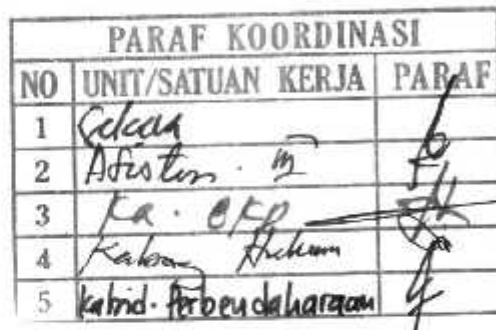 PARAF KOORDINASI
NO UNIT/SATUAN KERJA PARAF
1
2 Asisten . III
3 Ka.
4 Kabag Hukum
5 kabid. Perbendaharaan